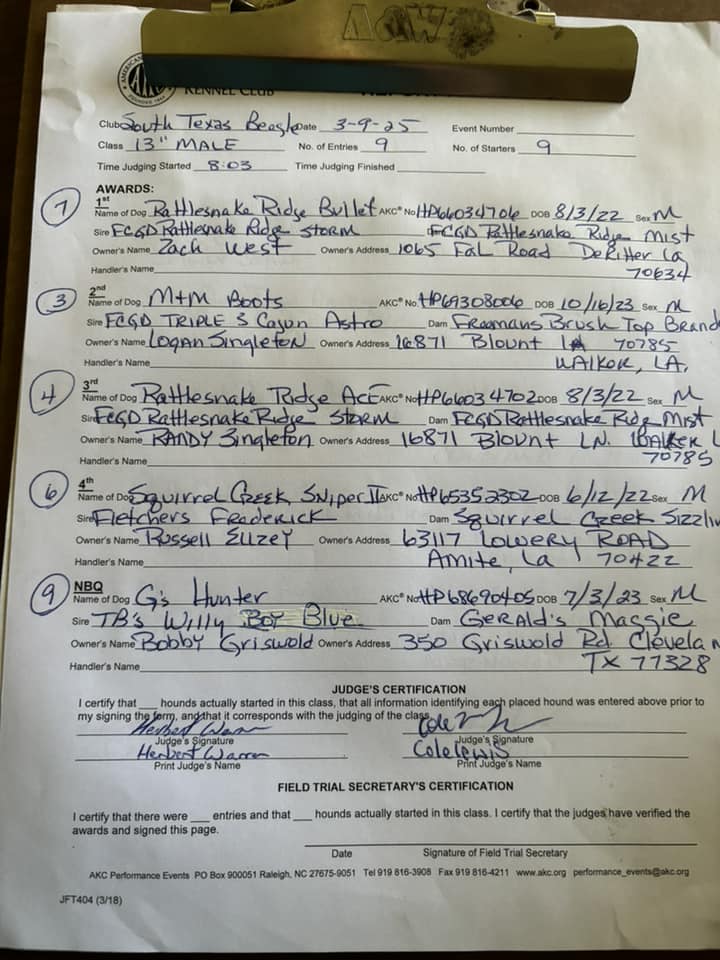 AOW
AMERICAN
AKC
FOUNDED 1884
KENNEL CLUB
Club South Texas Beagle Date 3-9-25 Event Number
Class 13" MALE No. of Entries 9 No. of Starters 9
Time Judging Started 8:03 Time Judging Finished
AWARDS:
7 1st
Name of Dog Rattlesnake Ridge Bullet AKC® No HP66034706 DOB 8/3/22 Sex M
Sire FCGD Rattlesnake Ridge STORM FCGD Rattlesnake Ridge Mist
Owner's Name Zach West Owner's Address 1065 Fal Road DeRitter La
Handler's Name 70634
3 2nd
Name of Dog M+M Boots AKC® No. HP69308006 DOB 10/16/23 Sex M
Sire FCGD TRIPLE S Cajun Astro Dam Freemans Brush Top Brand
Owner's Name Logan Singleton Owner's Address 16871 Blount LA 70785
Handler's Name WALKER, LA.
4 3rd
Name of Dog Rattlesnake Ridge Ace AKC® No HP66034702 DOB 8/3/22 Sex M
Sire FCGD Rattlesnake Ridge STORM Dam FCGD Rattlesnake Ridge Mist
Owner's Name RANDY Singleton Owner's Address 16871 Blount LN. WALKER L
Handler's Name 70785
6 4th
Name of Dog Squirrel Creek Sniper II AKC® No HP65352302 DOB 6/12/22 Sex M
Sire Fletchers Frederick Dam Squirrel Creek Sizzlin
Owner's Name Russell Elizey Owner's Address 63117 Lowery ROAD
Handler's Name Amite, La 70422
9 NBQ
Name of Dog G's Hunter AKC® No HP68690405 DOB 7/3/23 Sex M
Sire TB's Willy BOY Blue Dam GERALD's Maggie
Owner's Name Bobby Griswold Owner's Address 350 Griswold Rd Clevelan
Handler's Name TX 77328
JUDGE'S CERTIFICATION
I certify that ___ hounds actually started in this class, that all information identifying each placed hound was entered above prior to
my signing the form, and that it corresponds with the judging of the class.
Herbert Warren
Judge's Signature Judge's Signature
Herbert Warren Cole Lewis
Print Judge's Name Print Judge's Name
FIELD TRIAL SECRETARY'S CERTIFICATION
I certify that there were ___ entries and that ___ hounds actually started in this class. I certify that the judges have verified the
awards and signed this page.
Date Signature of Field Trial Secretary
AKC Performance Events PO Box 900051 Raleigh, NC 27675-9051 Tel 919 816-3908 Fax 919 816-4211 www.akc.org performance_events@akc.org
JFT404 (3/18)